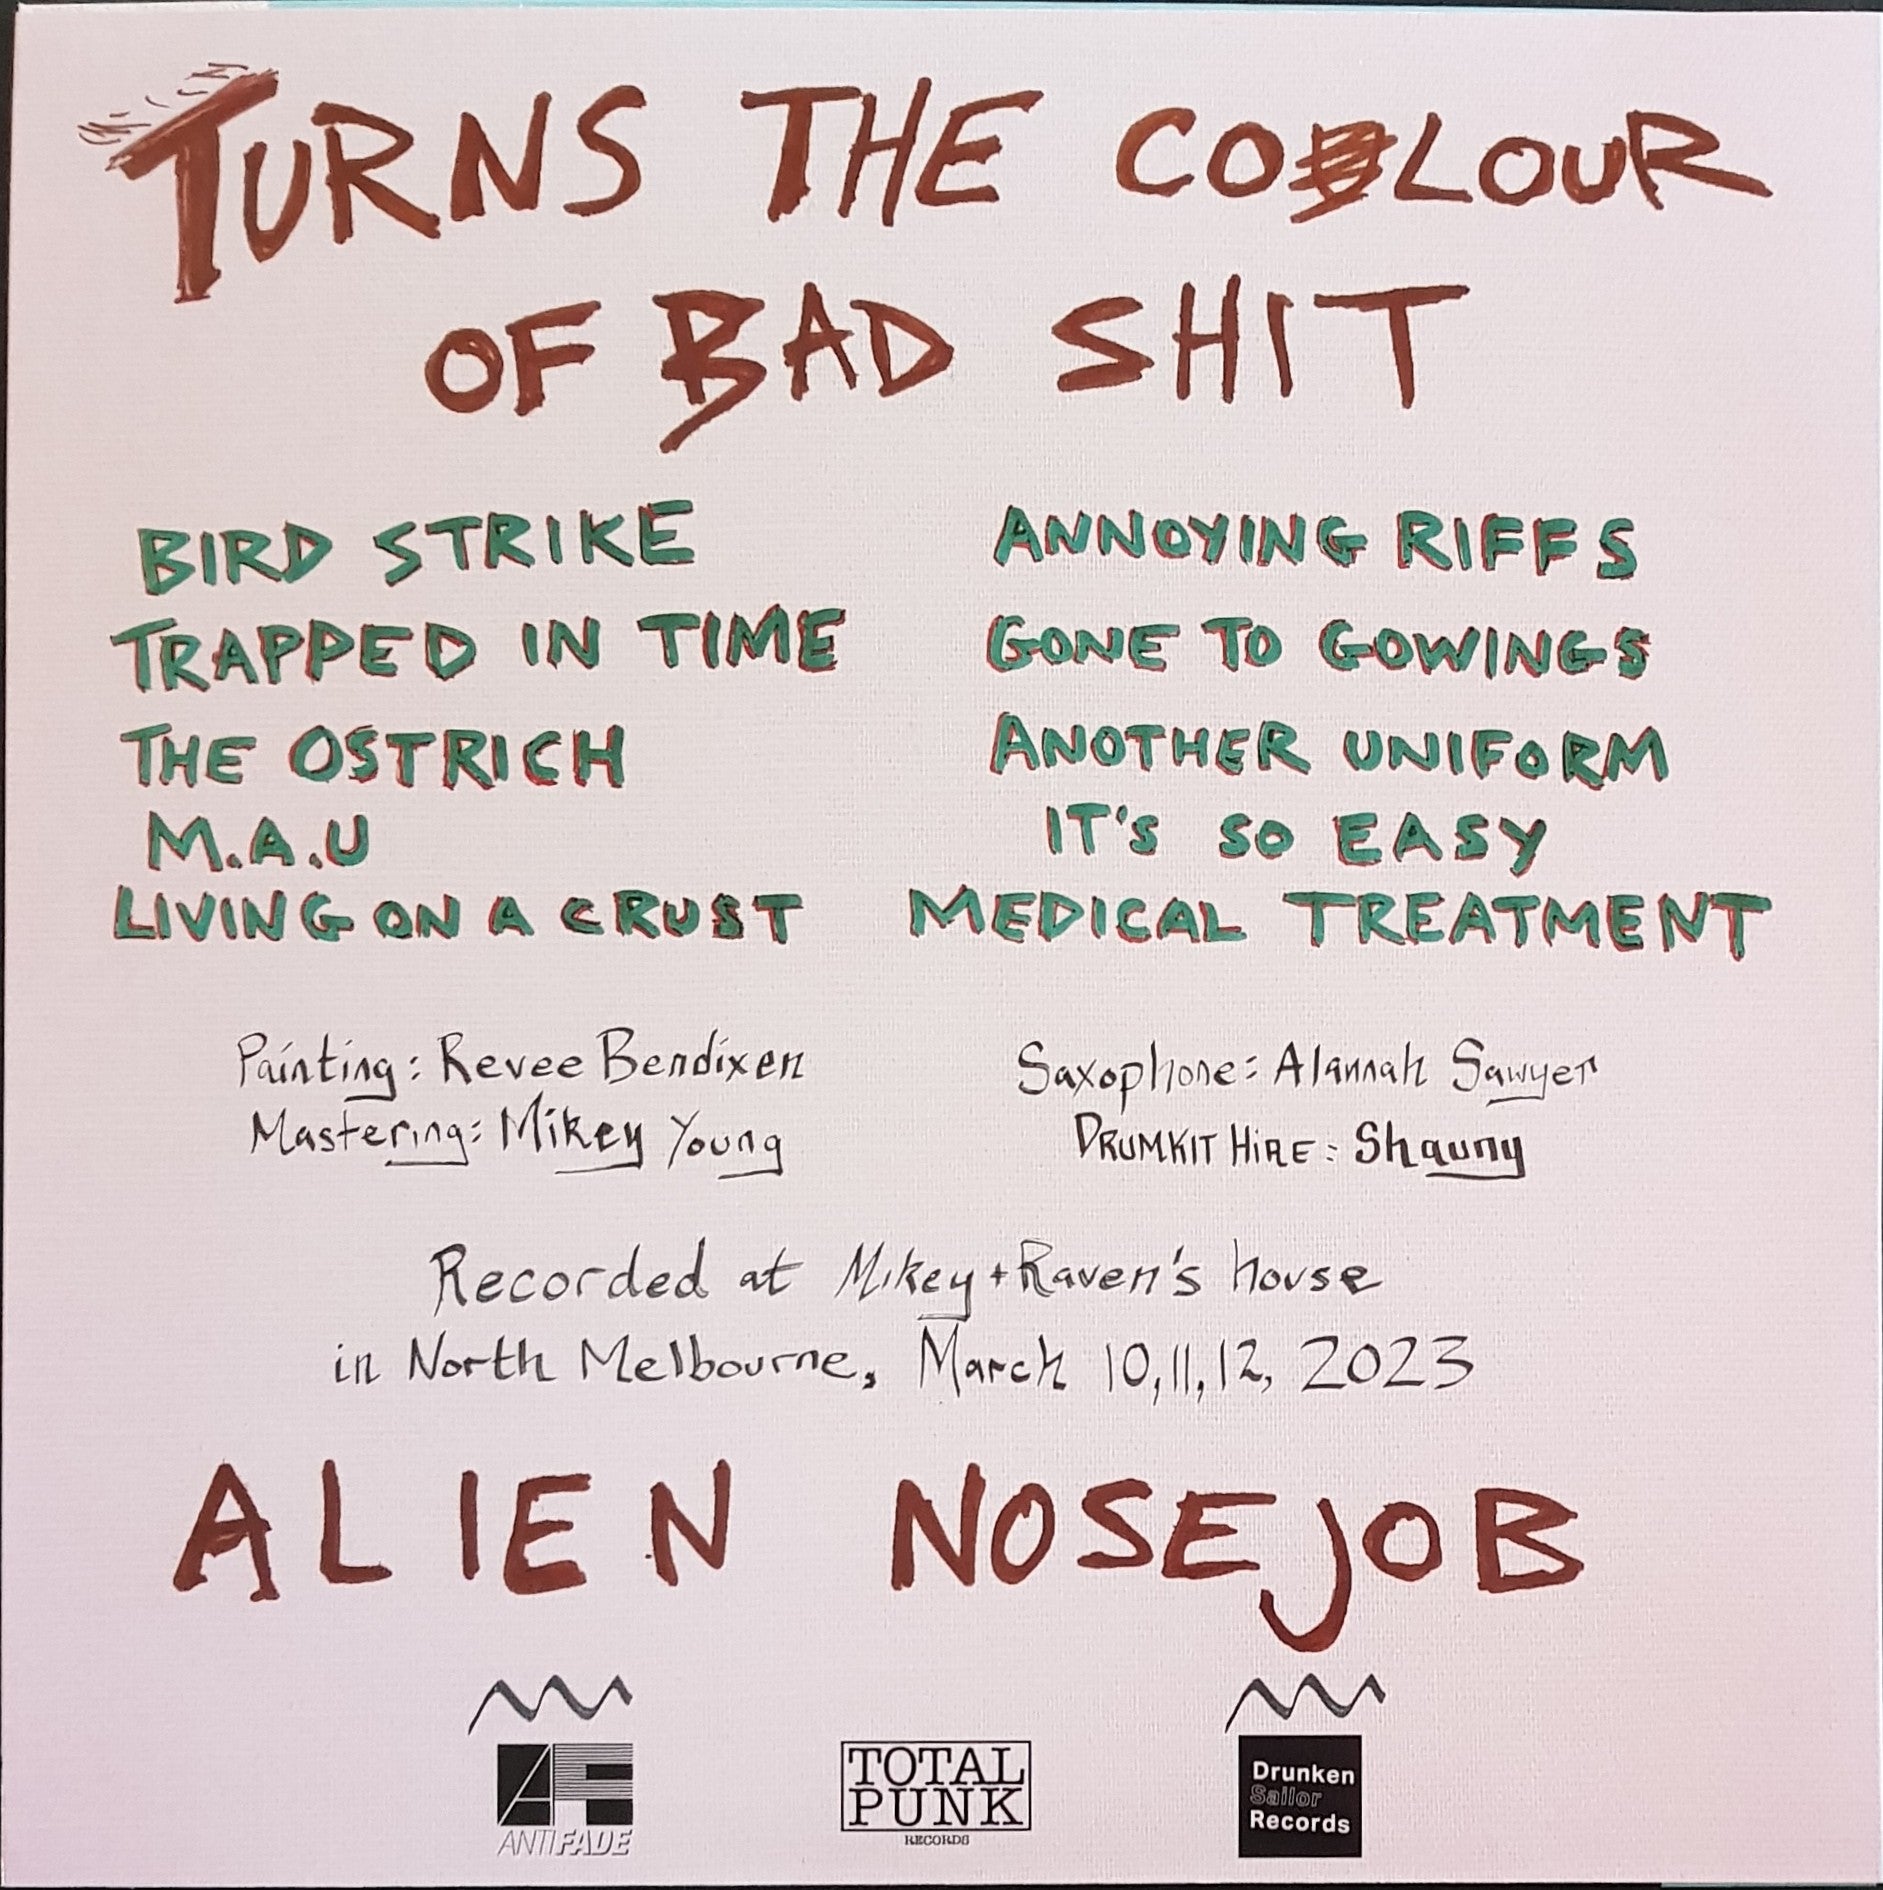 TURNS THE COLOUR
OF BAD SHIT
BIRD STRIKE
TRAPPED IN TIME
THE OSTRICH
M.A.U
LIVING ON A CRUST
ANNOYING RIFFS
GONE TO GOWINGS
ANOTHER UNIFORM
IT'S SO EASY
MEDICAL TREATMENT
Painting: Revee Bendixen
Mastering: Mikey Young
Saxophone: Alannah Sawyer
DRUMKIT HIRE: Shauny
Recorded at Mikey + Raven's house
in North Melbourne, March 10, 11, 12, 2023
ALIEN NOSEJOB
AF
ANTIFADE
TOTAL
PUNK
RECORDS
Drunken
Sailor
Records